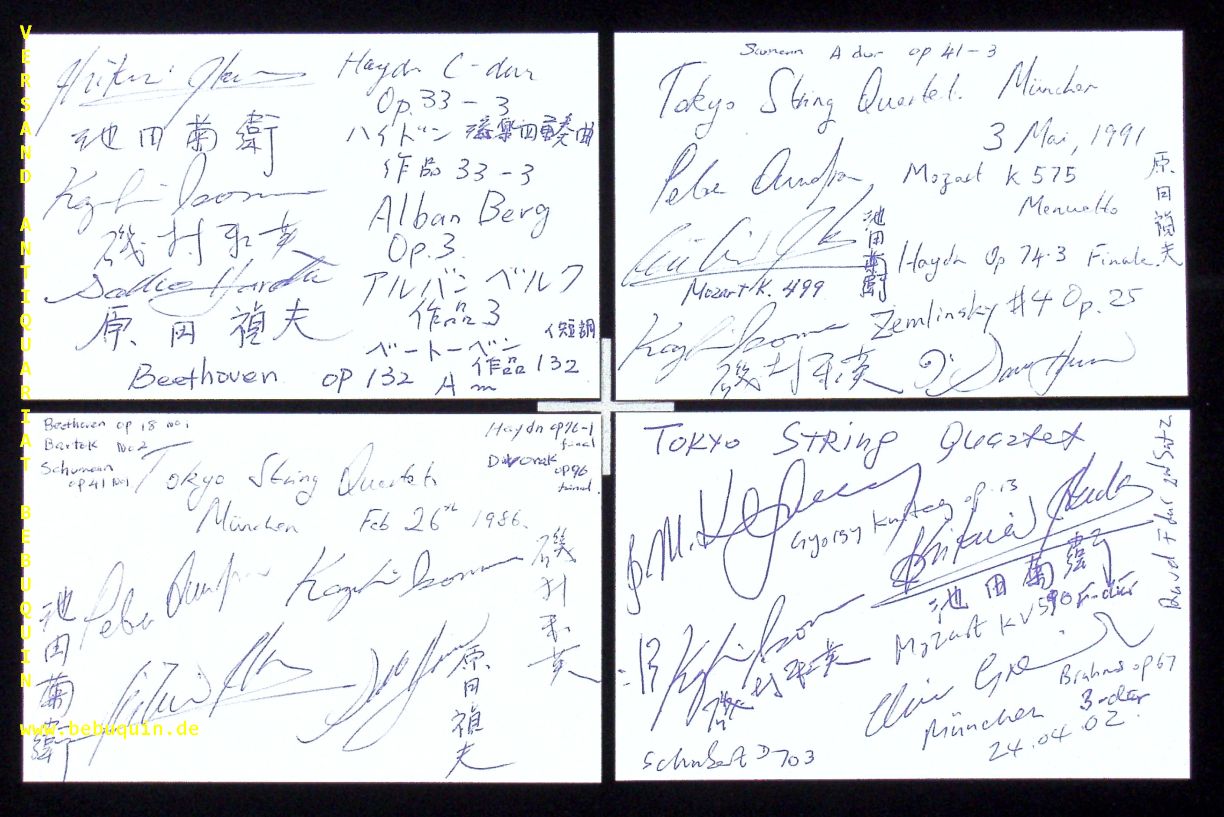 Haydn C-dur
Op. 33 - 3
池田菊衛
ハイドン 弦楽四重奏曲
作品 33 - 3
Alban Berg
Op. 3
磯村和英
アルバン ベルク
作品 3
原田禎夫
ベートーベン
作品 132
イ短調
Beethoven op 132 Am
A dur op 41 - 3
Tokyo String Quartet. München
3 Mai, 1991
Mozart K 575
Menuetto
原田禎夫
池田菊衛
Haydn Op 74-3 Finale.
Mozart K. 499
Zemlinsky #4 Op. 25
磯村和英
Beethoven op 18 no 1
Bartok No 2
Schumann
op 41 no 1
Haydn op 76-1
final
Dvorak
op 96
final.
Tokyo String Quartet
München Feb 26th 1986.
磯村和英
池田菊衛
原田禎夫
TOKYO STRING QUARTET
György Kurtag op. 13
池田菊衛
Mozart KV 590 F-dur
Ravel F dur 2nd Satz
磯村和英
Brahms op 67
3-der
München
24.04.02.
Schubert D 703
VERSAND ANTIQUARIAT BEBUQUIN
www.bebuquin.de